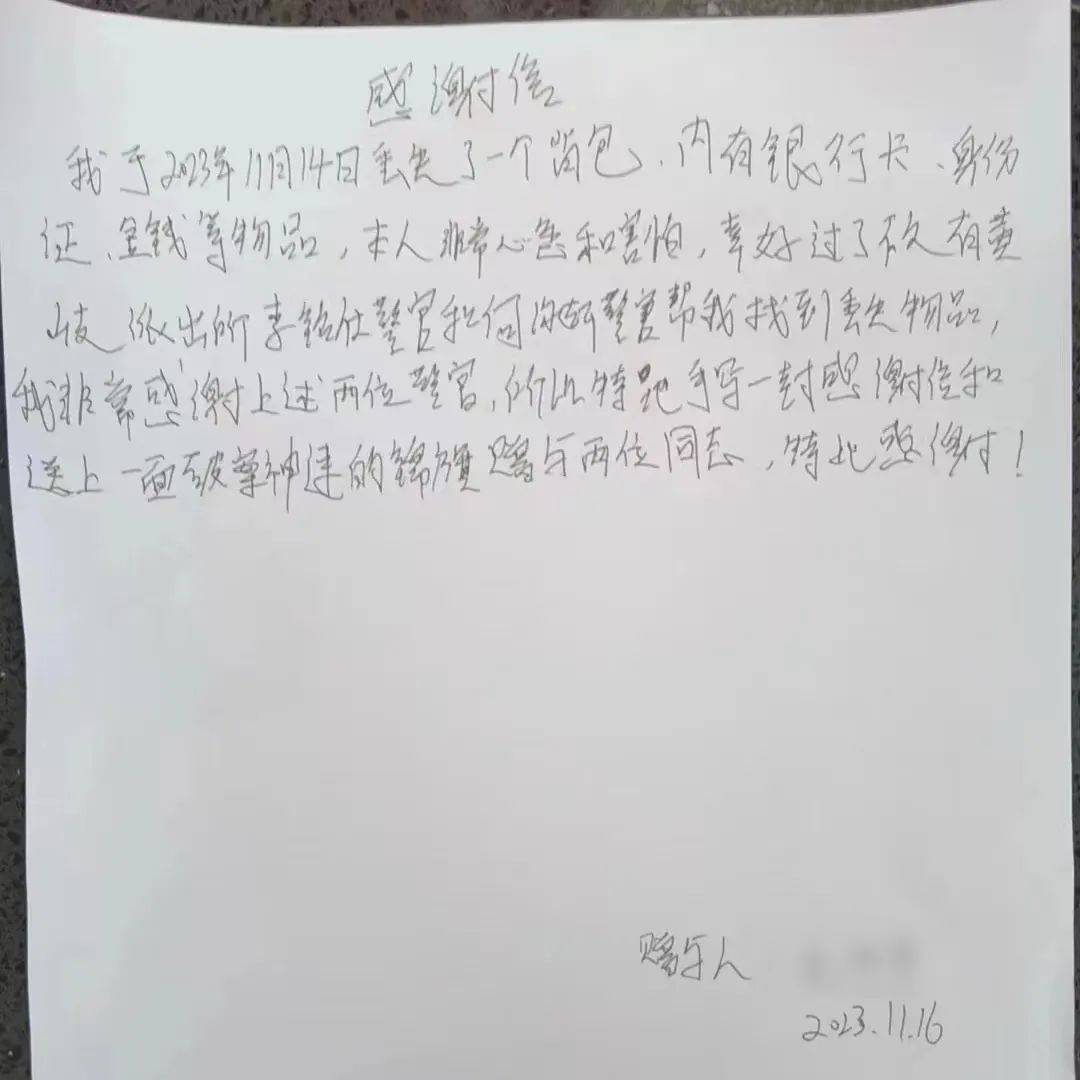 感谢信
我于2023年11月14日丢失了一个背包、内有银行卡、身份
证、金钱等物品，本人非常心急和害怕，幸好过了不久有黄
岐派出所李铭仕警官和何 警官帮我找到丢失物品，
我非常感谢上述两位警官，所以特地手写一封感谢信和
送上一面破案神速的锦旗赠与两位同志，特此感谢！
赠与人
2023.11.16